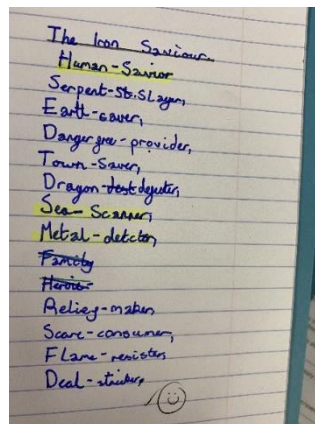 The Iron Saviour
Human-Savior
Serpent-St.Slayer,
Earth-saver,
Danger gree-provider,
Town-Saver,
Dragon-defeater,
Sea-Scanner,
Metal-detector,
Family
Heroic-
Relief-maker,
Scare-consumer,
Flame-resister,
Deal-striker,